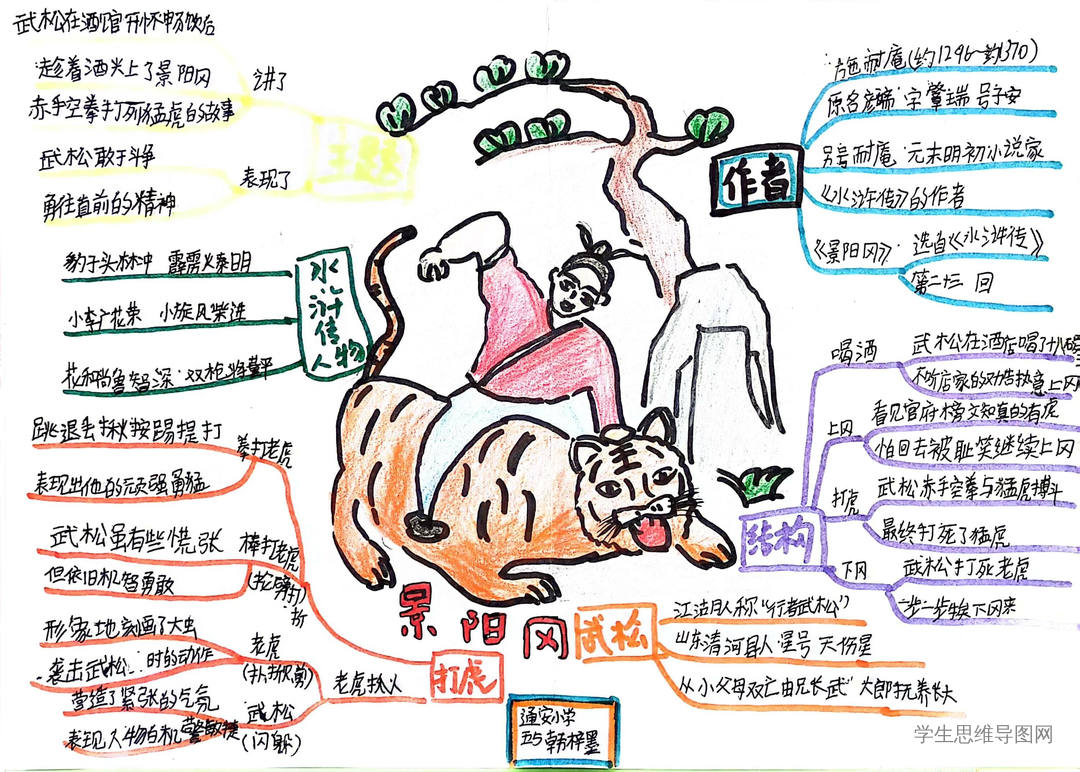 武松在酒馆开怀畅饮后
趁着酒兴上了景阳冈
讲了
赤手空拳打死猛虎的故事
主题
武松敢于斗争
表现了
勇往直前的精神
豹子头林冲 霹雳火秦明
小李广花荣 小旋风柴进
花和尚鲁智深 双枪将董平
水浒传人物
跳退丢揪按踢提打
拳打老虎
表现出他的顽强勇猛
武松虽有些慌张
棒打老虎
但依旧机智勇敢
形象地刻画了大虫
袭击武松 时的动作
老虎
营造了紧张的气氛
武松
表现人物的机警敏捷
(闪躲)
老虎扑人
打虎
景阳冈
施耐庵(约1296~约1370)
原名彦端 字肇瑞 号子安
另号耐庵 元末明初小说家
作者
《水浒传》的作者
《景阳冈》 选自《水浒传》
第二十三回
喝酒
武松在酒店喝了十八碗
不听店家的劝告执意上冈
上冈
看见官府榜文知真的有虎
怕回去被耻笑继续上冈
打虎
武松赤手空拳与猛虎搏斗
最终打死了猛虎
结构
下冈
武松打死老虎
一步一步挨下冈来
武松
江湖人称"行者武松"
山东清河县人 星号 天伤星
从小父母双亡由兄长武大郎抚养长大
通安小学
五5 韩梓墨
学生思维导图网